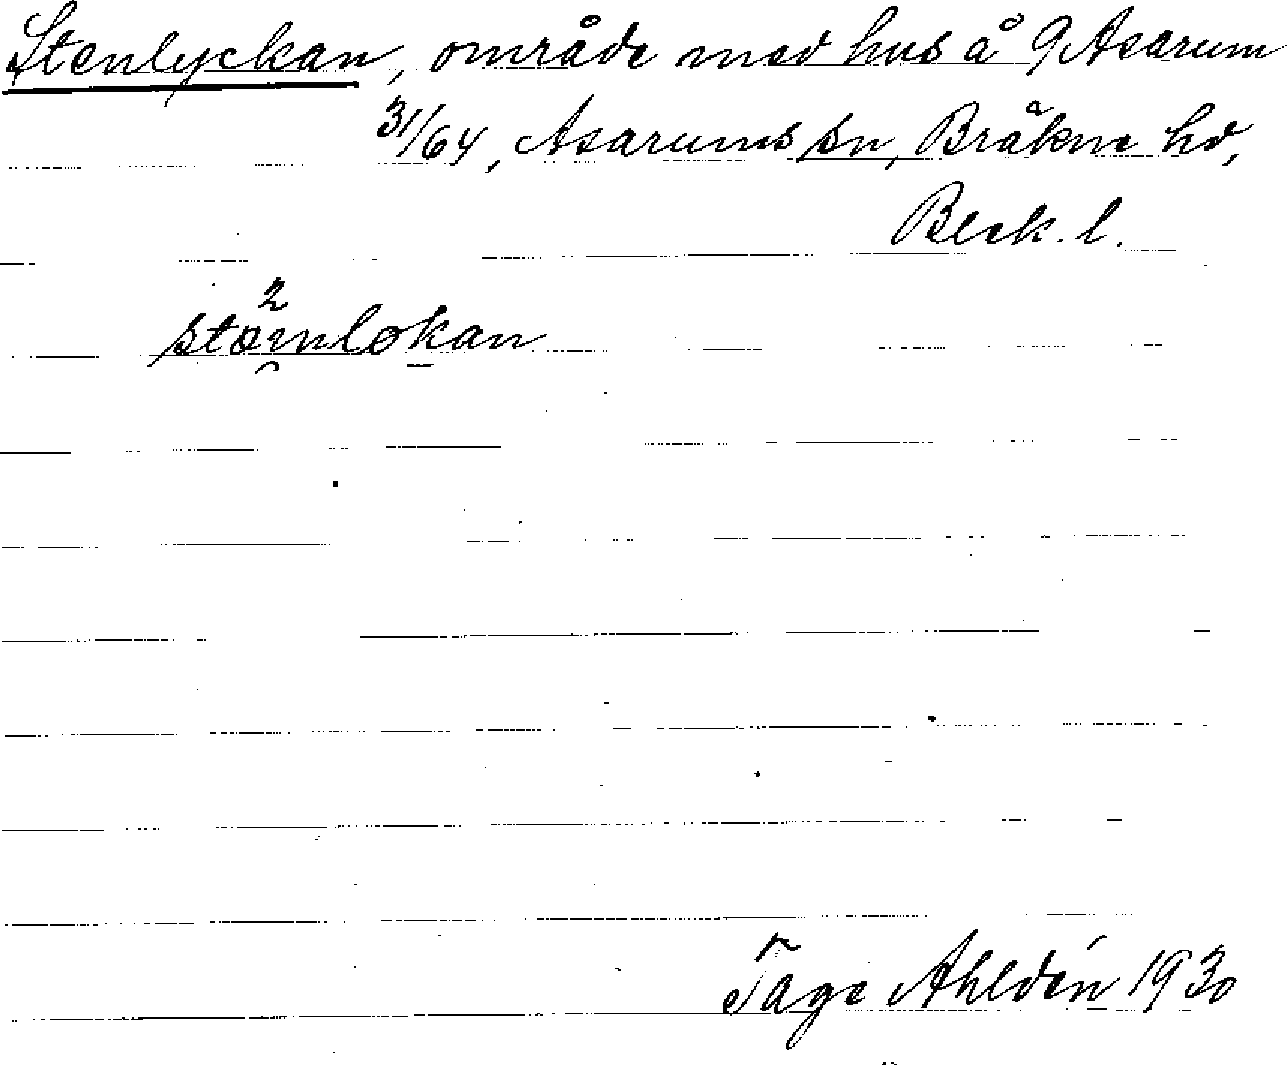 Stenlyckan, område med hus å 9 Asarum
31/64, Asarums sn, Bräkne hd,
Blek. l.
Tage Ahldén 1930